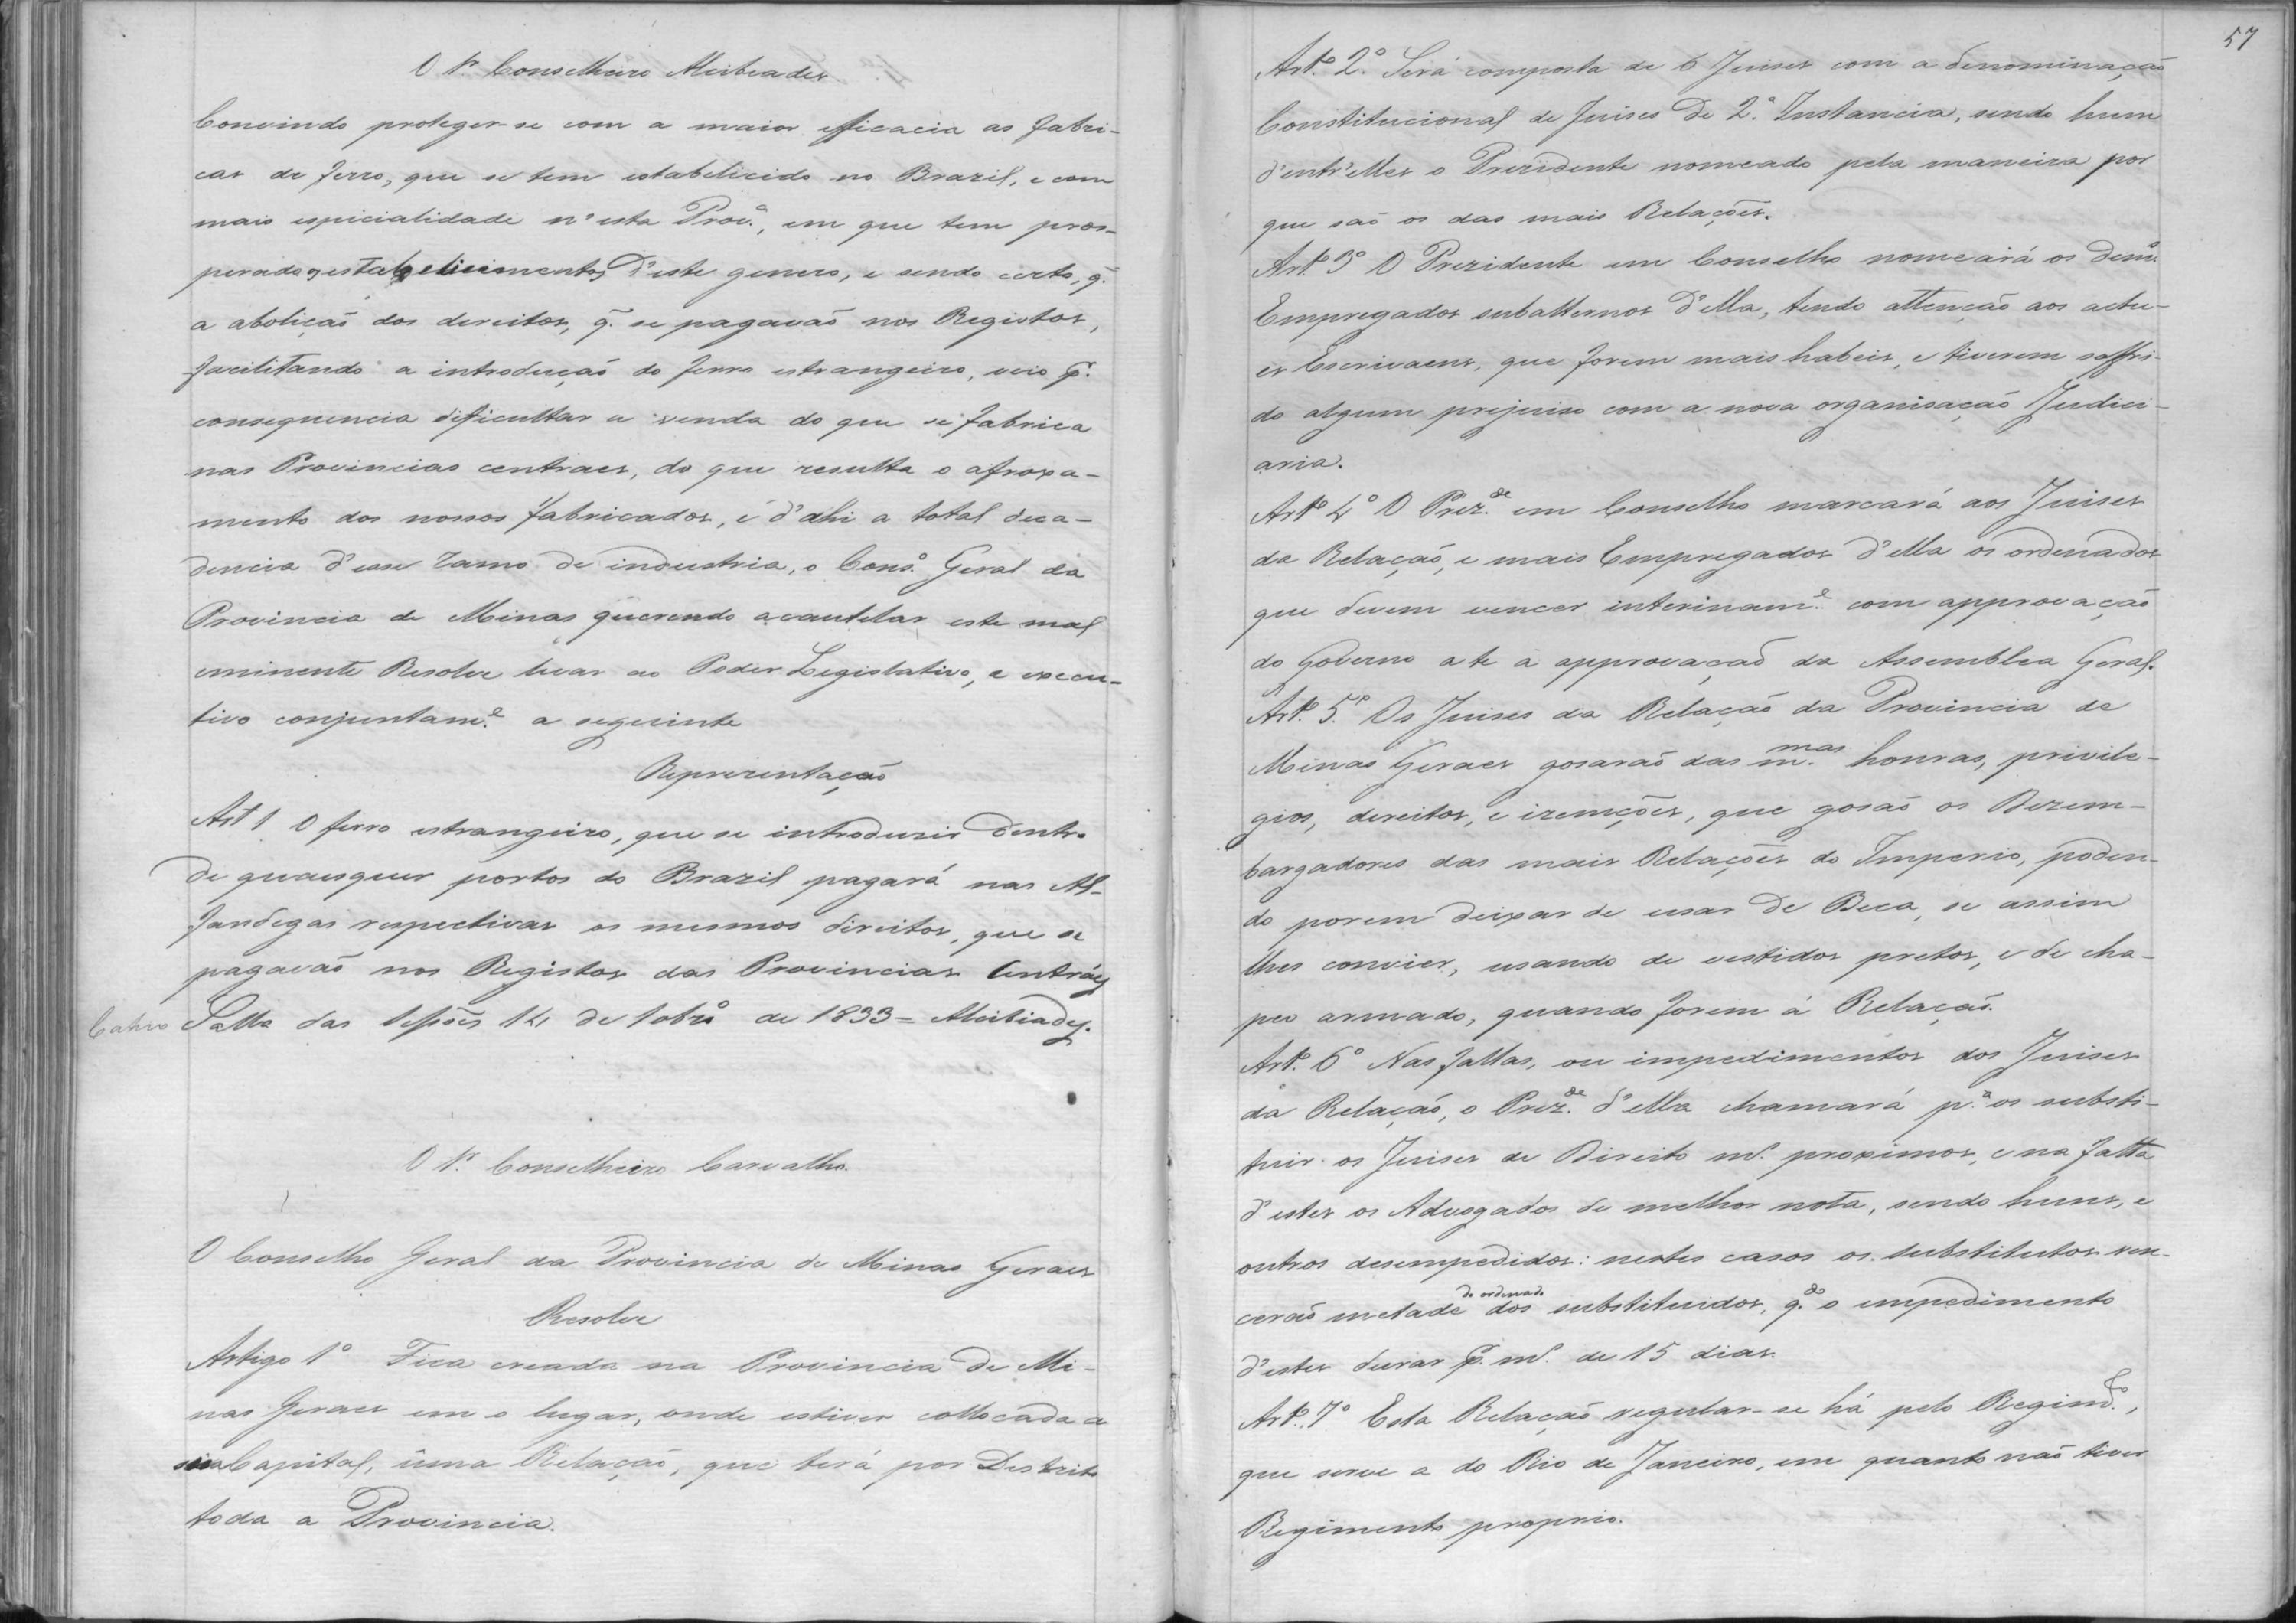 O Sr. Conselheiro Alcibiades
Convindo proteger-se com a maior efficacia as fabri-
cas de ferro, que se tem estabelicido no Brazil, e com
mais espicialidade n'esta Prov.ª, em que tem pros-
perado os estabelicimentos d'este genero, e sendo certo, q.
a aboliçaõ dos dereitos, q. se pagavaõ nos Registos,
facilitando a introducçaõ do ferro estrangeiro, veio p.
consequencia dificultar a venda do que se fabrica
nas Provincias centraes, do que resulta o afroxa-
mento dos nossos fabricados, e d'ahi a total deca-
dencia d'esse ramo de industria, o Cons.º Geral da
Provincia de Minas querendo acautelar este mal
eminente Resolve levar ao Poder Legislativo, e execu-
tivo conjuntam.e a seguinte
Reprezentaçaõ
Art 1 O ferro estrangeiro, que se introduzir dentro
de quaesquer portos do Brazil pagará nas Al-
fandegas respectivas os mesmos direitos, que se
pagavaõ nos Registos das Provincias Centráes
Salla das Sessões 14 de 10brº de 1833 = Alcibiades.
O Sr. Conselheiro Carvalho.
O Conselho Geral da Provincia de Minas Geraes
Resolve
Artigo 1º Fica creada na Provincia de Mi-
nas Geraes em o lugar, onde estiver collocada a
sua Capital, uma Relaçaõ, que terá por Destrito
toda a Provincia.
57
Artº 2.º Será composta de 6 Juises com a denominaçaõ
Constitucional de Juises de 2.ª Instancia, sendo hum
d'entr'elles o Prezidente nomeado pela maneira por
que saõ os das mais Relações.
Artº 3º O Prezidente em Conselho nomeará os dem.s
Empregados subalternos d'ella, tendo attençaõ aos actu-
es Escrivaens, que forem mais habeis, e tiverem soffri-
do algum prejuiso com a nova organisaçaõ Judici-
aria.
Artº 4º O Prez.de em Conselho marcará aos Juises
da Relaçaõ, e mais Empregados d'ella os ordenados
que devem vencer interinam.e com approvaçaõ
do Governo até a approvaçaõ da Assemblea Geral.
Artº 5.º Os Juises da Relaçaõ da Provincia de
Minas Geraes gosaraõ das m.mas honras, privile-
gios, dereitos, e izemções, que gosaõ os Dezem-
bargadores das mais Relações do Imperio, poden-
do porem deixar de usar de Beca, se assim
lhes convier, usando de vestidos pretos, e de cha-
peo armado, quando forem á Relaçaõ.
Artº 6º Nas faltas, ou impedimentos dos Juises
da Relaçaõ, o Prez.de d'ella chamará p.ª os substi-
tuir os Juises de Direito m.s proximos, e na falta
d'estes os Advogados de melhor nota, sendo huns, e
outros desempedidos: nestes casos os substitutos ven-
ceraõ metade do ordenado dos substituidos, q.do o impedimento
d'estes durar p. m.s de 15 dias.
Artº 7º Esta Relaçaõ regular-se há pelo Regim.to,
que serve a do Rio de Janeiro, em quanto naõ tiver
Regimento proprio.